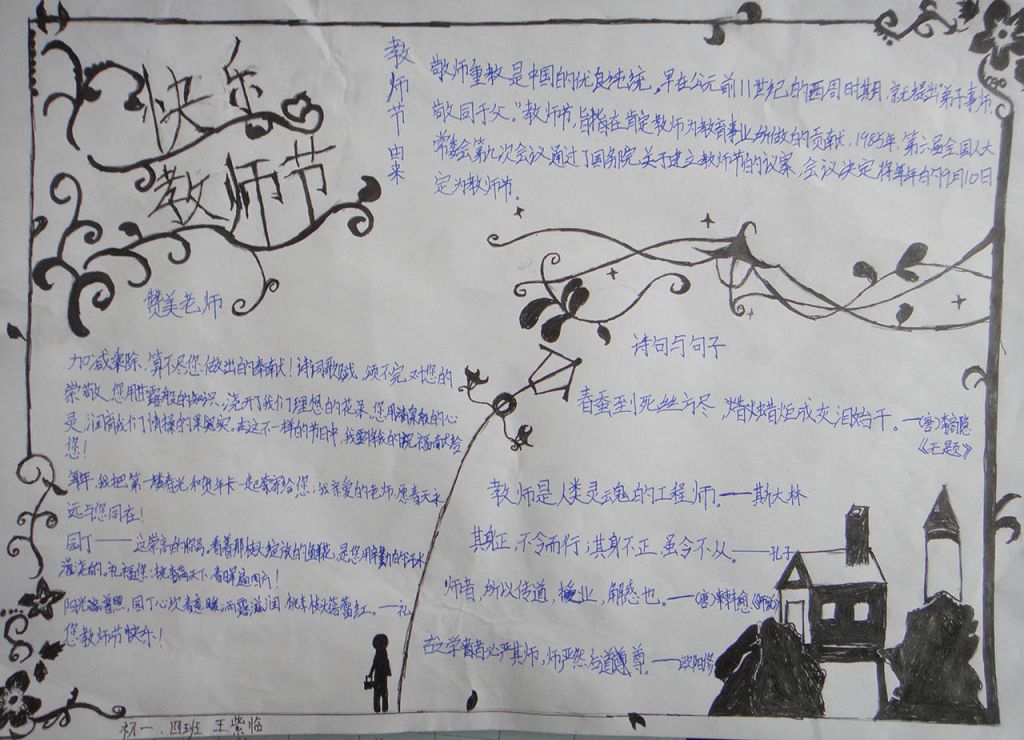 快乐
教师节
教师节由来
敬师重教是中国的优良传统。早在公元前11世纪的西周时期,就提出"弟子事师,
敬同于父。"教师节,旨在肯定教师为教育事业所做的贡献,1985年,第六届全国人大
常委会第九次会议通过了国务院关于建立教师节的议案,会议决定将每年的9月10日
定为教师节。
赞美老师
加减乘除,算不尽您做出的奉献!诗词歌赋,颂不完对您的
崇敬。您用甘露般的知识,浇开了我们理想的花朵,您用清泉般的心
灵,润育我们情操的果实。在这不一样的节日中,我要将我的祝福献给
您!
每年,我把第一缕春光和贺年卡一起寄给您;我亲爱的老师,愿春天永
远与您同在!
园丁——这崇高的称号。看着那绽放的鲜花,是您用辛勤的汗水
滋浇的。礼福您:桃李满天下,春晖遍四方!
阳光普照,园丁心坎春意暖,雨露滋润,桃李蓓蕾红。——礼
您教师节快乐!
诗句与句子
春蚕到死丝方尽,蜡炬成灰泪始干。——(唐)李商隐
《无题》
教师是人类灵魂的工程师。——斯大林
其身正,不令而行;其身不正,虽令不从。——孔子
师者,所以传道,授业,解惑也。——(唐)韩愈《师说》
古之学者必严其师,师严然后道尊。——欧阳修
初一.四班 王紫临